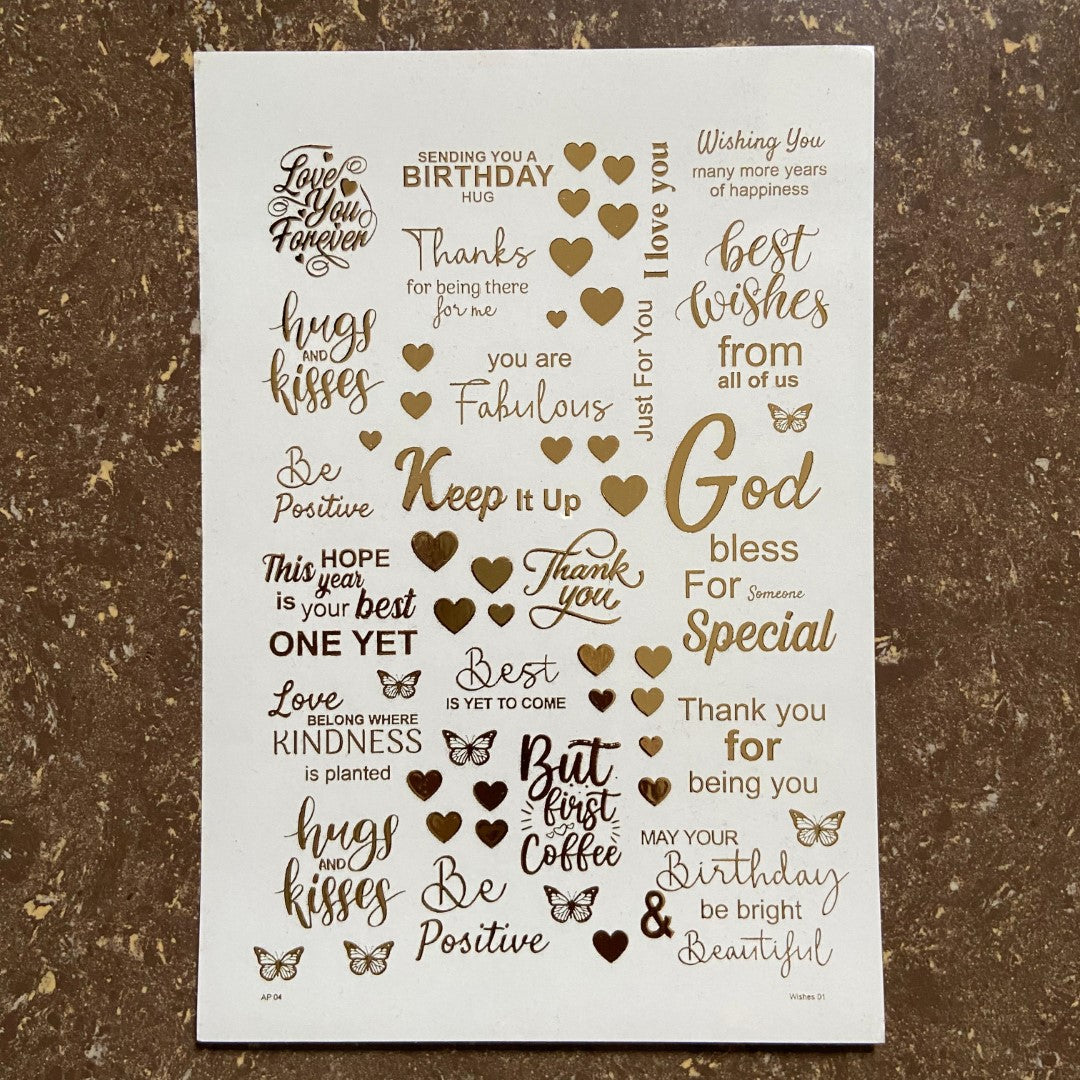 Love
You
Forever
SENDING YOU A
BIRTHDAY
HUG
I love you
Wishing You
many more years
of happiness
Thanks
for being there
for me
best
wishes
from
all of us
hugs
AND
kisses
you are
Fabulous
Just For You
Be
Positive
Keep It Up
God
bless
For Someone
Special
This HOPE
year
is your best
ONE YET
Thank
you
Best
IS YET TO COME
Love
BELONG WHERE
KINDNESS
is planted
Thank you
for
being you
But
first
Coffee
hugs
AND
kisses
Be
Positive
MAY YOUR
Birthday
be bright
&
Beautiful
AP 04
Wishes 01